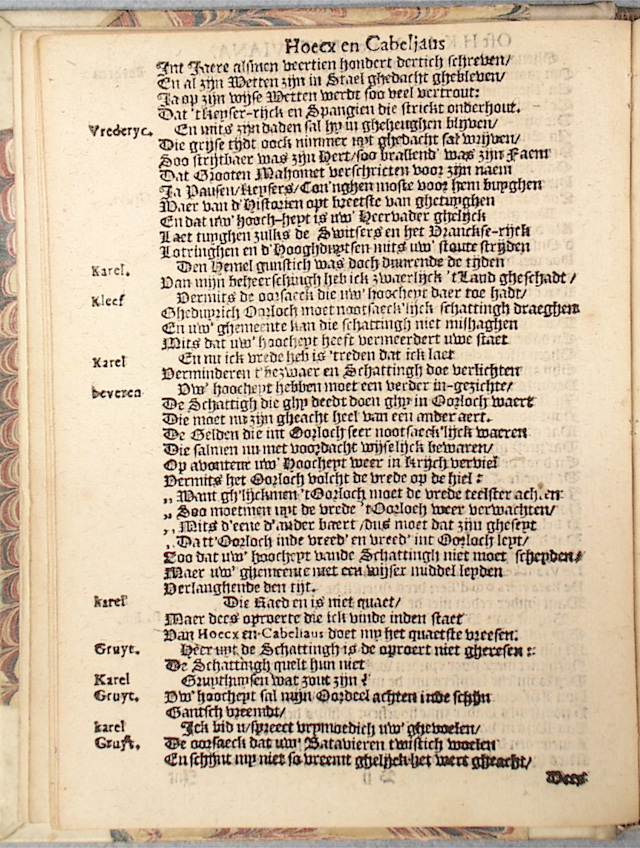 Hoecx en Cabeljaus
Int Jaere alsmen veertien hondert dertich schreven/
En al zijn Wetten zijn in Stael ghedacht ghebleven/
Ja op zijn wijse Wetten werdt soo veel vertrout:
Dat 'tkeyser-rijck en Spangien die strickt onderhout.
Vrederyc. En mits zijn daden sal hy in gheheughen blijven/
Die grijse tijdt oock nimmer uyt ghedacht sal wrijven/
Soo strijtbaer was zijn Hert/soo brallend' was zijn Faem
Dat Grooten Mahomet verschrickten voor zijn naem
Ja Pausen/Keysers/Con'nghen moste voor hem buyghen
Waer van d'Historien opt breetste van ghetuyghen
En dat uw' hooch-heyt is uw' Heervader ghelijck
Laet tuyghen zulks de Switsers en het Vranckse-rijck
Lotringhen en d'Hooghduytsen mits uw' stoute strijden
Karel. Den Hemel gunstich was doch duurende de tijden
Van mijn beheerschingh heb ick zwaerlijck 'tLand gheschadt/
Kleef Vermits de oorsaeck die uw' hoocheyt daer toe hadt/
Gheduyrich Oorloch moet nootsaeck'lijck schattingh draeghen
En uw' ghemeente kan die schattingh niet mishaghen
Mits dat uw' hoocheyt heeft vermeerdert uwe staet
Karel En nu ick vrede heb is 'treden dat ick laet
Verminderen t'bezwaer en Schattingh doe verlichten
beveren Uw' hoocheyt hebben moet een verder in-gezichte/
De Schattigh die ghy deedt doen ghy in Oorloch waert
Die moet nu zijn gheacht heel van een ander aert.
De Gelden die int Oorloch seer nootsaeck'lijck waeren
Die salmen nu met voordacht wijselijck bewaren/
Op avonture uw' Hoocheyt weer in krijch verviel
Vermits het Oorloch volcht de vrede op de hiel:
„ Want gh'lijckmen 'tOorloch moet de vrede teelster achten
„ Soo moetmen uyt de vrede 'tOorloch weer verwachten/
„ Mits d'eene d'ander baert/dus moet dat zijn gheseyt
„ Datt'Oorloch inde vreed' en vreed' int Oorloch leyt/
Soo dat uw' hoocheyt vande Schattingh niet moet scheyden/
Maer uw' ghemeente met een wijser middel leyden
Verlanghende den tijt.
Karel Die Raed en is niet quaet/
Maer dees oproerte die ick vinde inden staet
Van Hoecx en Cabeliaus doet my het quaetste vreesen.
Gruyt. Heer uyt de Schattingh is de oproert niet gheresen:
De Schattingh quelt hun niet
Karel Gruythuysen wat zout zijn?
Gruyt. Uw' hoocheyt sal mijn Oordeel achten inde schijn
Gantsch vreemdt/
karel Ick bid u/spreect vrymoedich uw' ghevoelen/
Gruyt. De oorsaeck dat uw' Batavieren twistich woelen
En schijnt my niet so vreemt ghelijck het wert gheacht/
Dees